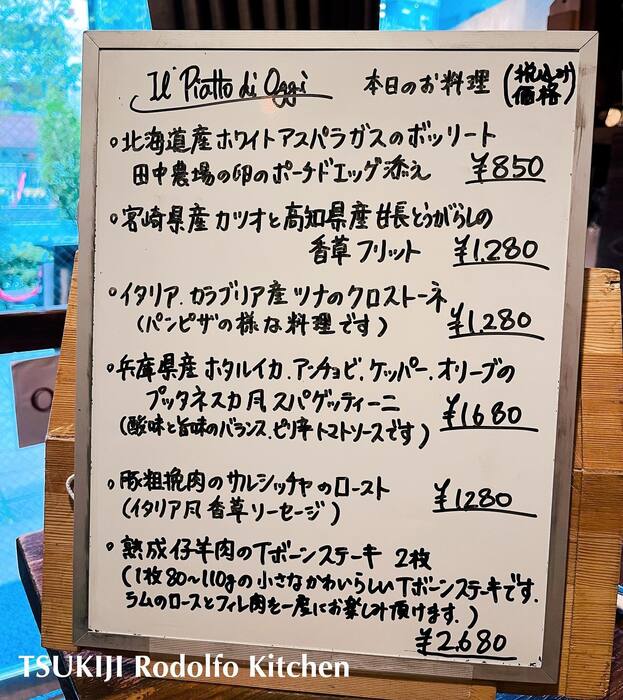 Il Piatto di Oggi 本日のお料理 (税込み価格)
・北海道産ホワイトアスパラガスのボッリート
田中農場の卵のポーチドエッグ添え ¥850
・宮崎県産カツオと高知県産甘長とうがらしの
香草フリット ¥1,280
・イタリア.カラブリア産ツナのクロストーネ
(パンピザの様な料理です) ¥1,280
・兵庫県産ホタルイカ.アンチョビ.ケッパー.オリーブの
プッタネスカ風スパゲッティーニ ¥1680
(酸味と旨味のバランス.ピリ辛トマトソースです)
・豚粗挽肉のサルシッチャのロースト ¥1280
(イタリア風香草ソーセージ)
・熟成仔羊肉のTボーンステーキ 2枚
(1枚80〜110gの小さなかわいらしいTボーンステーキです.
ラムのロースとフィレ肉を一度にお楽しみ頂けます.)
¥2,680
TSUKIJI Rodolfo Kitchen